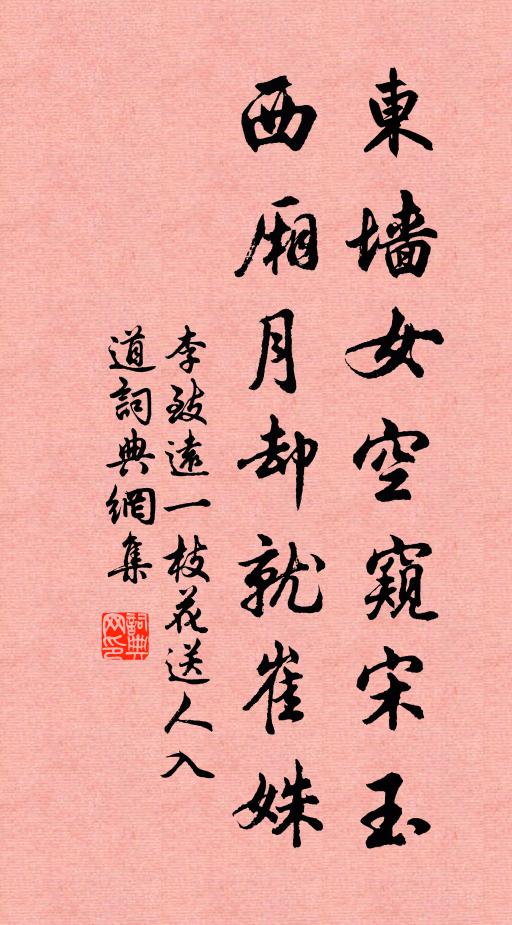 東墙女空窺宋玉
西厢月却就崔姝
李致遠一枝花送人入
道詞典網集
詞典网印